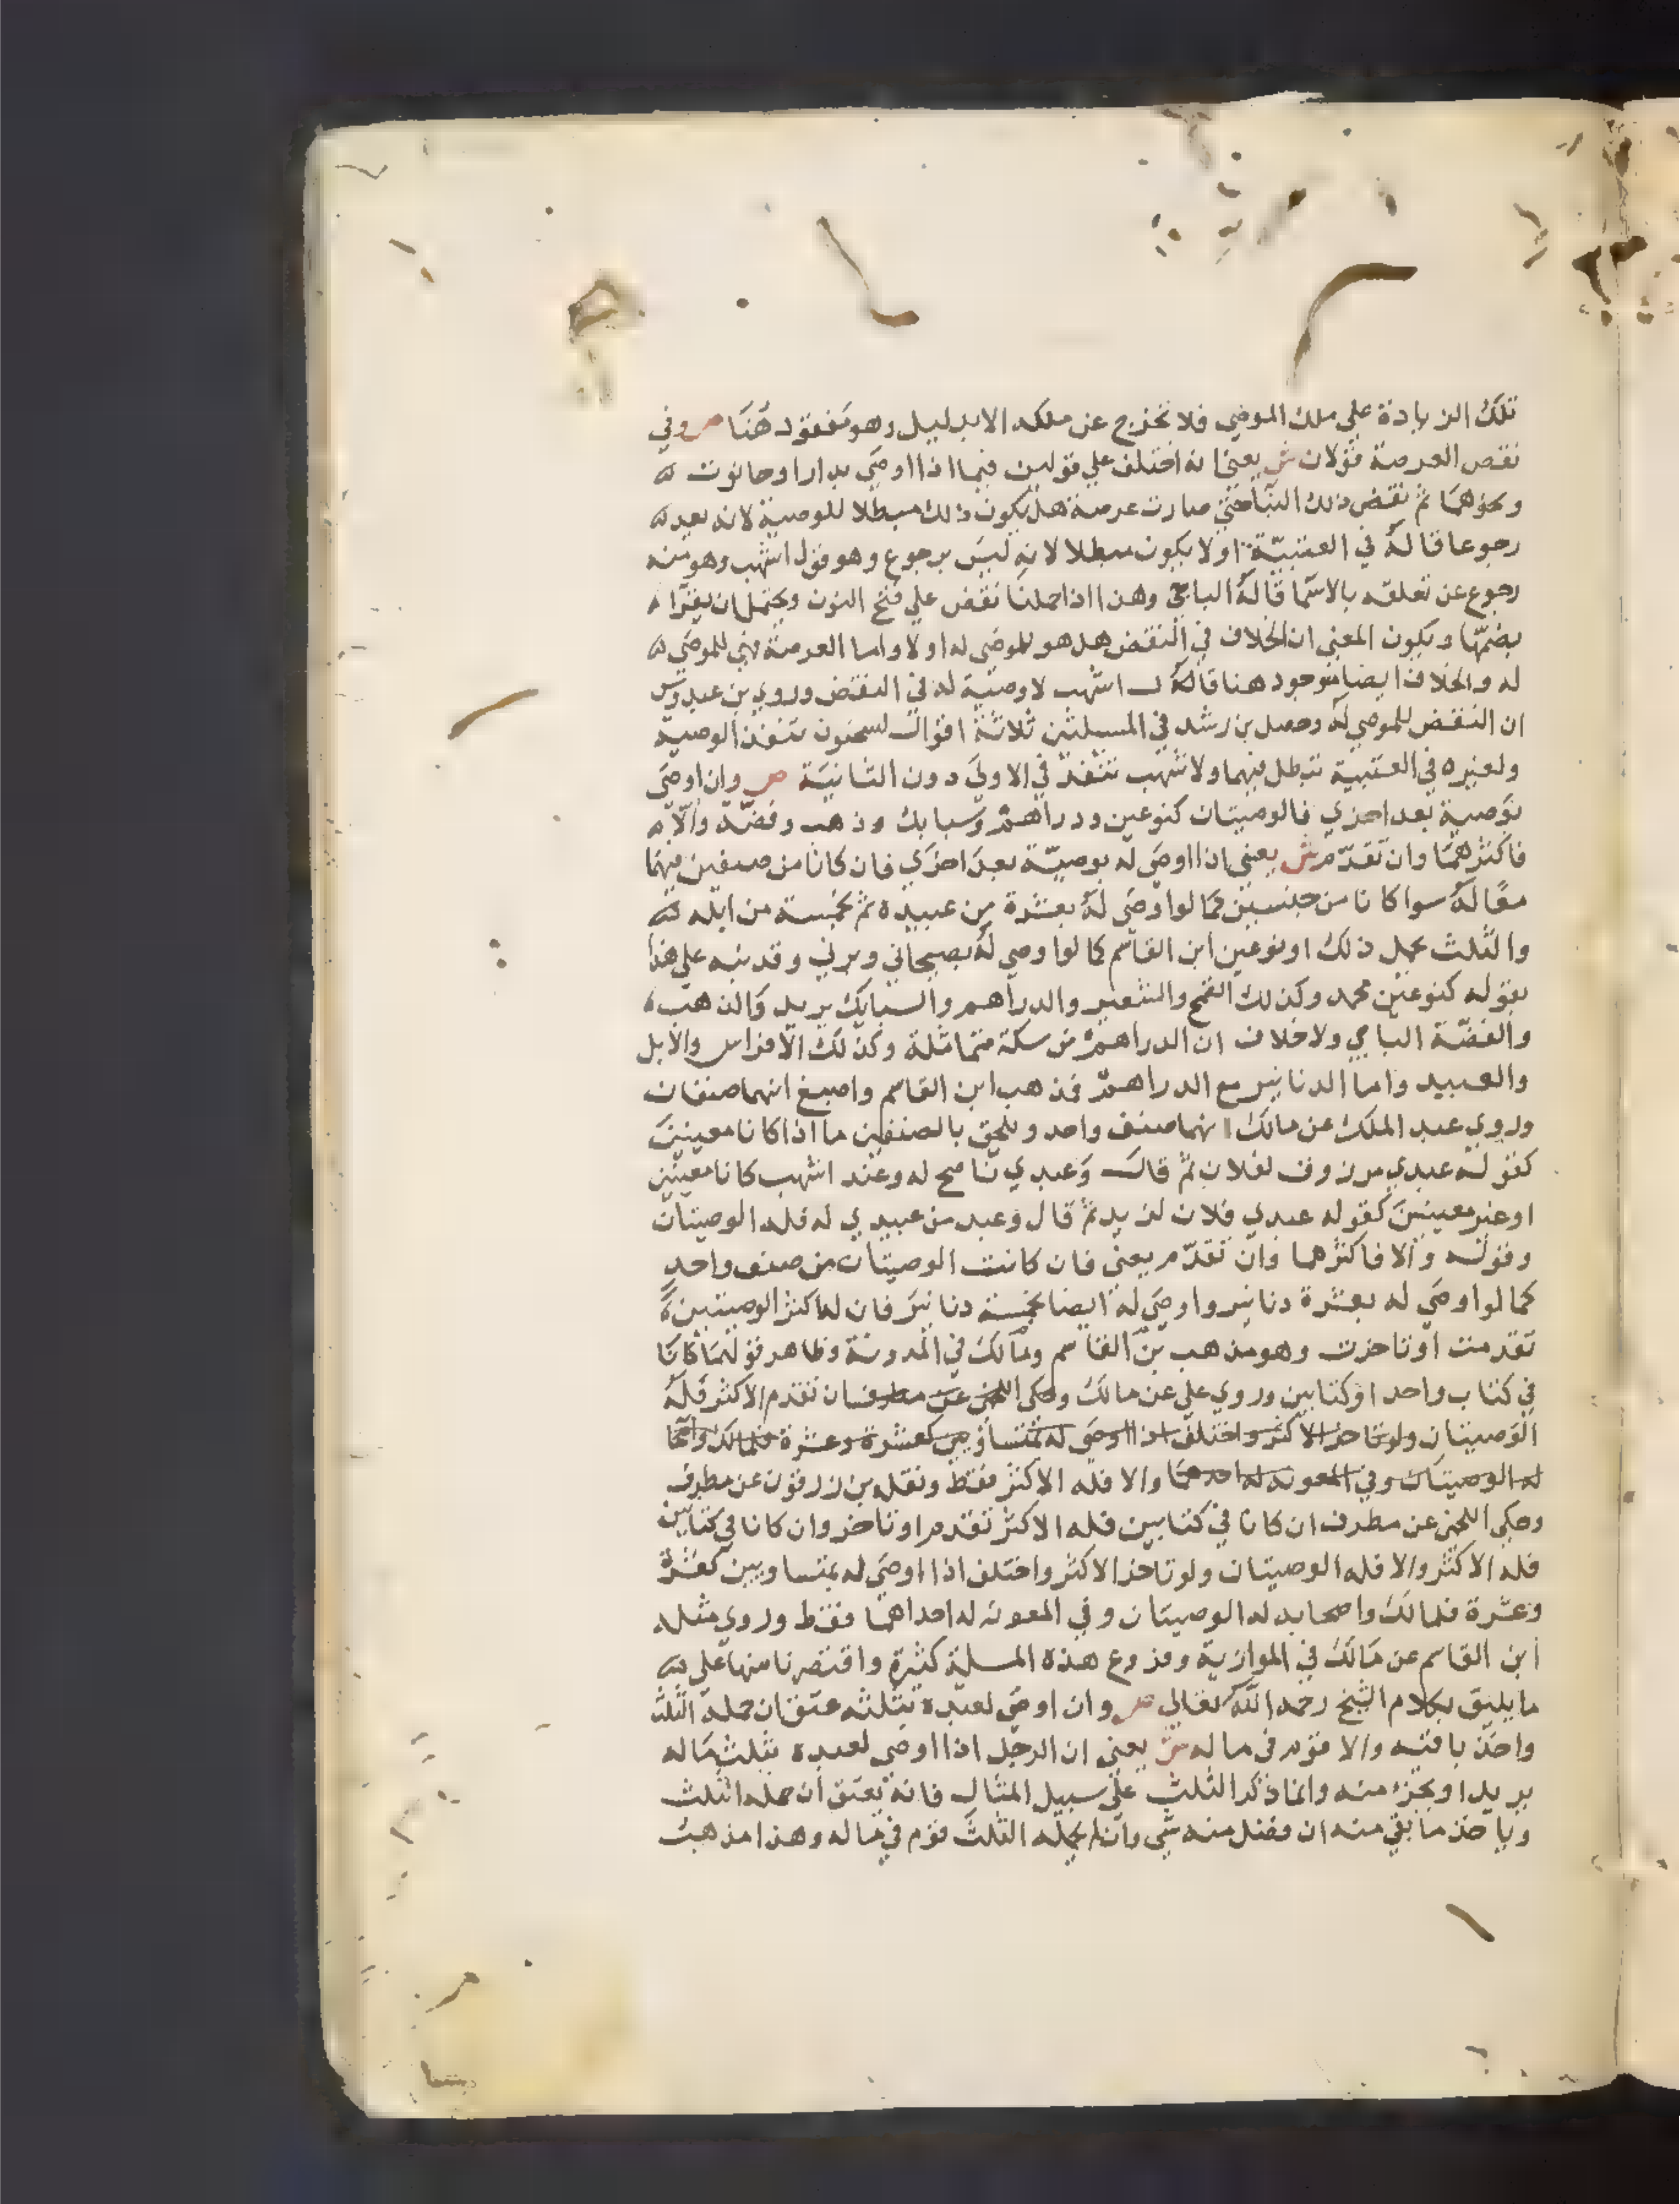 تلك الزيادة على ملك الموصي فلا تخرج عن ملكه الا بدليل وهو مفقود هنا ص وفي
نقص العرصة قولان ش يعني انه اختلف علي قولين فيما اذا اوصي بدار او حانوت
ونحوهما ثم نقض ذلك البنا حتي صارت عرصة هل يكون ذلك مبطلا للوصية لانه يعد
رجوعا قاله في العتبية او لا يكون مبطلا لانه ليس برجوع وهو قول اشهب وهو منه
رجوع عن تعلقه بالاسما قاله الباجي وهذا اذا حملنا نقض علي فتح النون ويحتمل ان يقرا
بضمها ويكون المعني ان الخلاف في النقض هل هو للموصي له اولا واما العرصة فهي للموصي
له والخلاف ايضا موجود هنا قاله اشهب لا وصية له في النقض وروي بن عبدوس
ان النقض للموصي له وحصل بن رشد في المسلتين ثلاثة اقوال لسحنون تنفذ الوصية
ولغيره في العتبية تبطل فيهما ولاشهب تنفذ في الاولي دون الثانية ص وان اوصي
بوصية بعد اخري فالوصيتان كنوعين ودراهم وسبايك وذهب وفضة والا
فاكثرهما وان تقدم ش يعني اذا اوصي له بوصية بعد اخري فان كانا من صنفين فهما
معا له سوا كانا من جنسين كما لو اوصي له بعشرة من عبيده ثم بخمسة من ابله
والثلث يحمل ذلك او نوعين ابن القاسم كما لو اوصي له بصيحاني وبرني وقد نبه علي هذا
بقوله كنوعين محمد وكذلك القمح والشعير والدراهم والسبايك يريد والذهب
والفضة الباجي ولا خلاف ان الدراهم من سكة متماثلة وكذلك الافراس والابل
والعبيد واما الدنانير مع الدراهم فذهب ابن القاسم واصبغ انهما صنفان
وروي عبد الملك عن مالك انهما صنف واحد ويلحق بالصنفين ما اذا كانا معينين
كقوله عبدي مرزوق لفلان ثم قال وعبدي ناصح له وعند اشهب كانا معينين
او غير معينين كقوله عبدي فلان لزيد ثم قال وعبد من عبيدي له فله الوصيتان
وقوله والا فاكثرهما وان تقدم يعني فان كانت الوصيتان من صنف واحد
كما لو اوصي له بعشرة دنانير واوصي له ايضا بخمسة دنانير فان له اكثر الوصيتين
تقدمت او تاخرت وهو مذهب بن القاسم ومالك في المدونة وظاهر قولهما كانا
في كتاب واحد او كتابين وروي علي عن مالك وحكي اللخمي عن مطرف ان تقدم الاكثر فله
الوصيتان ولو تاخر الاكثر واختلف اذا اوصي له بمتساويين كعشرة وعشرة فلمالك واصحابه
له الوصيتان وفي المعونه له احدهما والا فله الاكثر فقط ونقله بن زرقون عن مطرف
وحكي اللخمي عن مطرف ان كانا في كتابين فله الاكثر تقدم او تاخر وان كانا في كتابين
فله الاكثر والا فله الوصيتان ولو تاخر الاكثر واختلف اذا اوصي له بمتساويين كعشرة
وعشرة فلمالك واصحابه له الوصيتان وفي المعونه له احداهما فقط وروي مثله
ابن القاسم عن مالك في الموازية وفروع هذه المسلة كثيرة واقتصرنا منها علي
ما يليق بكلام الشيخ رحمه الله تعالي ص وان اوصي لعبده بثلثه عتق ان حمله الثلث
واخذ باقيه والا قوم في ماله ش يعني ان الرجل اذا اوصي لعبده بثلث ماله
يريد او بجزء منه وانما ذكر الثلث علي سبيل المثال فانه يعتق ان حمله الثلث
وياخذ ما بقي منه ان فضل منه شي وان لم يحمله الثلث قوم في ماله وهذا مذهب